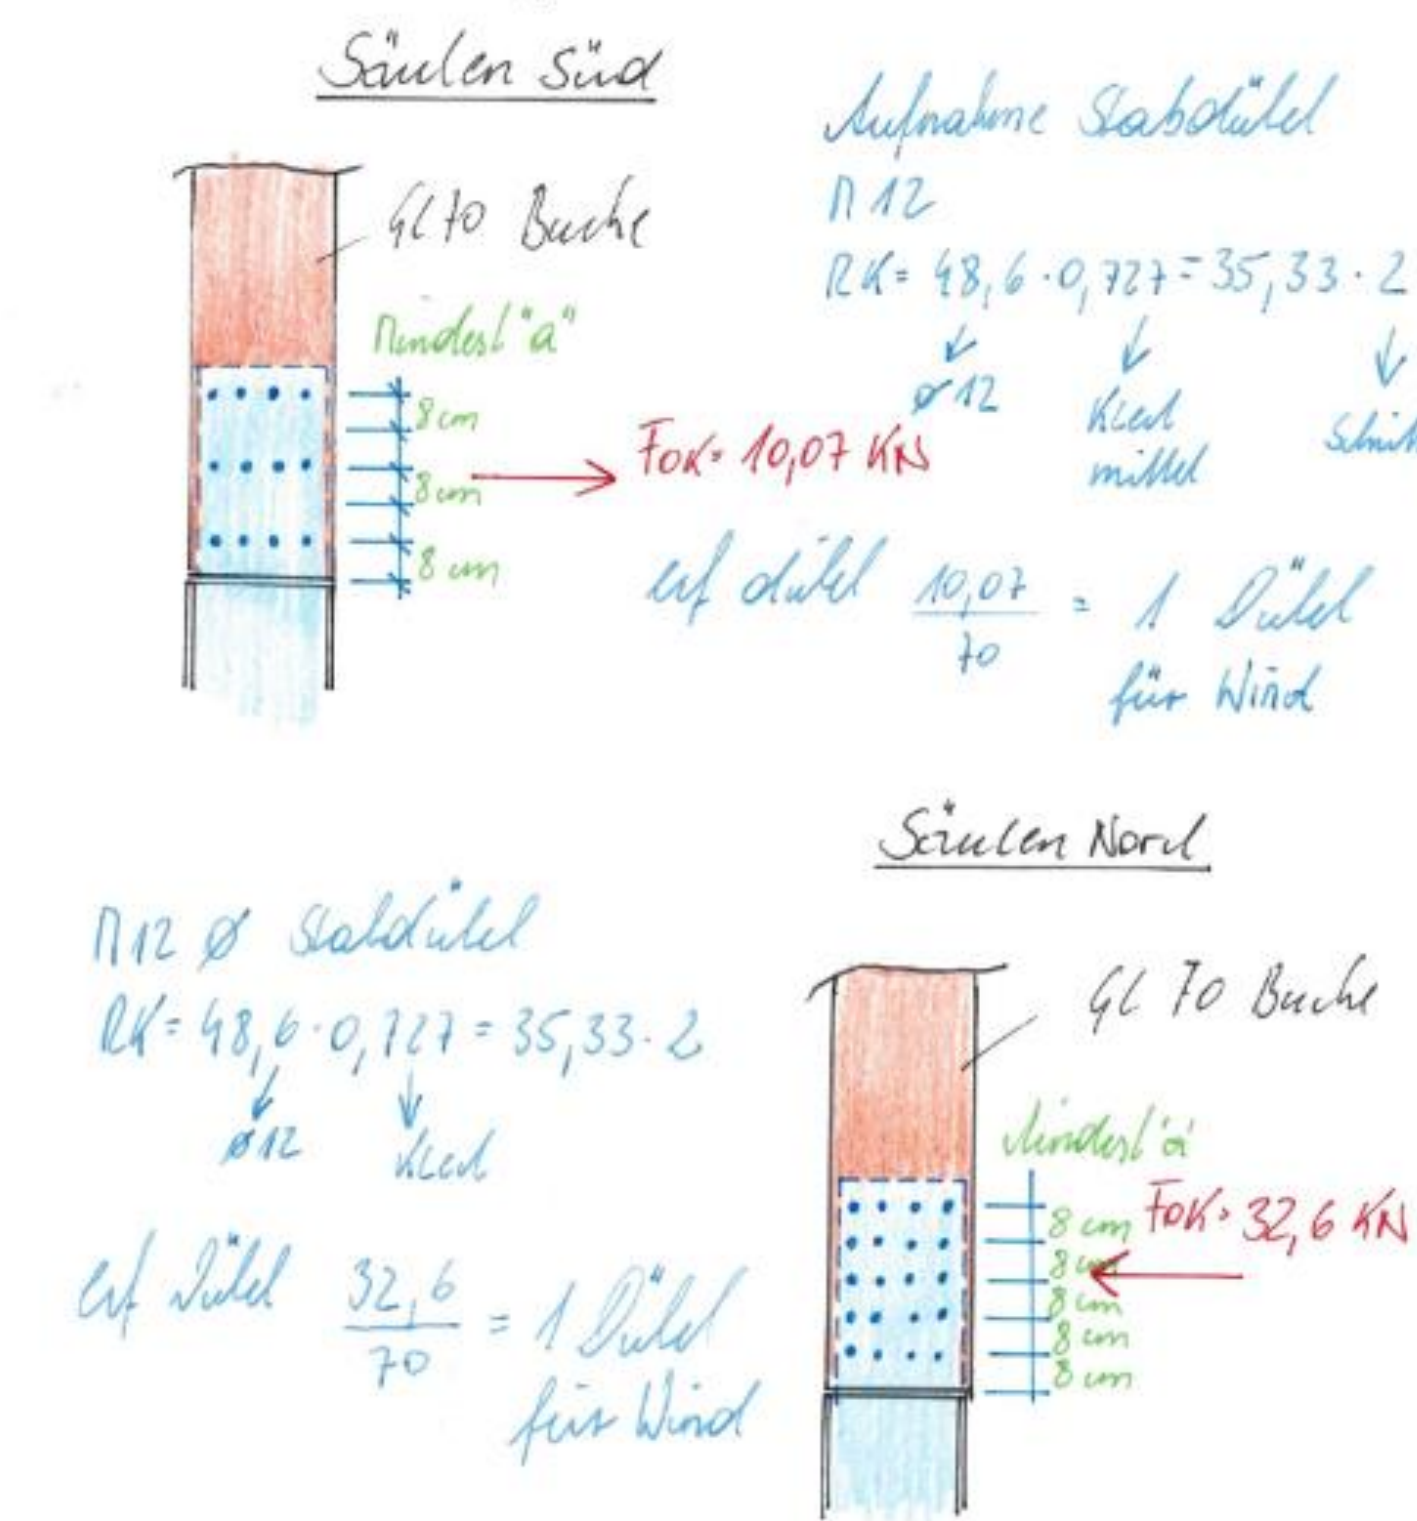 Säulen Süd
GL 70 Buche
Mindest "a"
8 cm
8 cm
8 cm
Aufnahme Stabdübel
M 12
RK = 48,6 · 0,727 = 35,33 · 2
ø 12
KLED
mittel
Schnit
FoK = 10,07 KN
erf dübel 10,07 / 70 = 1 Dübel
für Wind
Säulen Nord
M12 ø Stabdübel
RK = 48,6 · 0,727 = 35,33 · 2
ø12
KLED
erf Dübel 32,6 / 70 = 1 Dübel
für Wind
GL 70 Buche
Mindest 'a'
FoK = 32,6 KN
8 cm
8 cm
8 cm
8 cm
8 cm